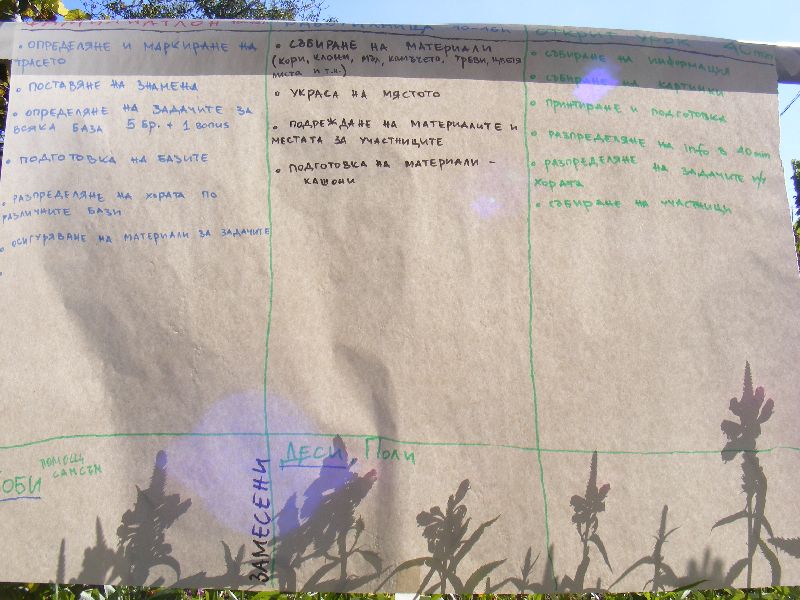 • ОПРЕДЕЛЯНЕ И МАРКИРАНЕ НА
ТРАСЕТО
• ПОСТАВЯНЕ НА ЗНАМЕНА
• ОПРЕДЕЛЯНЕ НА ЗАДАЧИТЕ ЗА
ВСЯКА БАЗА 5 БР. + 1 BONUS
• ПОДГОТОВКА НА БАЗИТЕ
• РАЗПРЕДЕЛЯНЕ НА ХОРАТА ПО
РАЗЛИЧНИТЕ БАЗИ
• ОСИГУРЯВАНЕ НА МАТЕРИАЛИ ЗА ЗАДАЧИТЕ
• СЪБИРАНЕ НА МАТЕРИАЛИ
(КОРИ, КЛОНИ, МЪХ, КАМЪЧЕТА, ТРЕВИ, ЦВЕТЯ
ЛИСТА И Т.Н.)
• УКРАСА НА МЯСТОТО
• ПОДРЕЖДАНЕ НА МАТЕРИАЛИТЕ И
МЕСТАТА ЗА УЧАСТНИЦИТЕ
• ПОДГОТОВКА НА МАТЕРИАЛИ -
КАШОНИ
ОТКРИТ УРОК 40min
• СЪБИРАНЕ НА ИНФОРМАЦИЯ
• СЪБИРАНЕ НА КАРТИНКИ
• ПРИНТИРАНЕ И ПОДГОТОВКА
• РАЗПРЕДЕЛЯНЕ НА info В 40 min
• РАЗПРЕДЕЛЯНЕ НА ЗАДАЧИТЕ М/У
ХОРАТА
• СЪБИРАНЕ НА УЧАСТНИЦИ
ПОМОЩ
САМСЪН
ЗАМЕСЕНИ
ДЕСИ, ПОЛИ